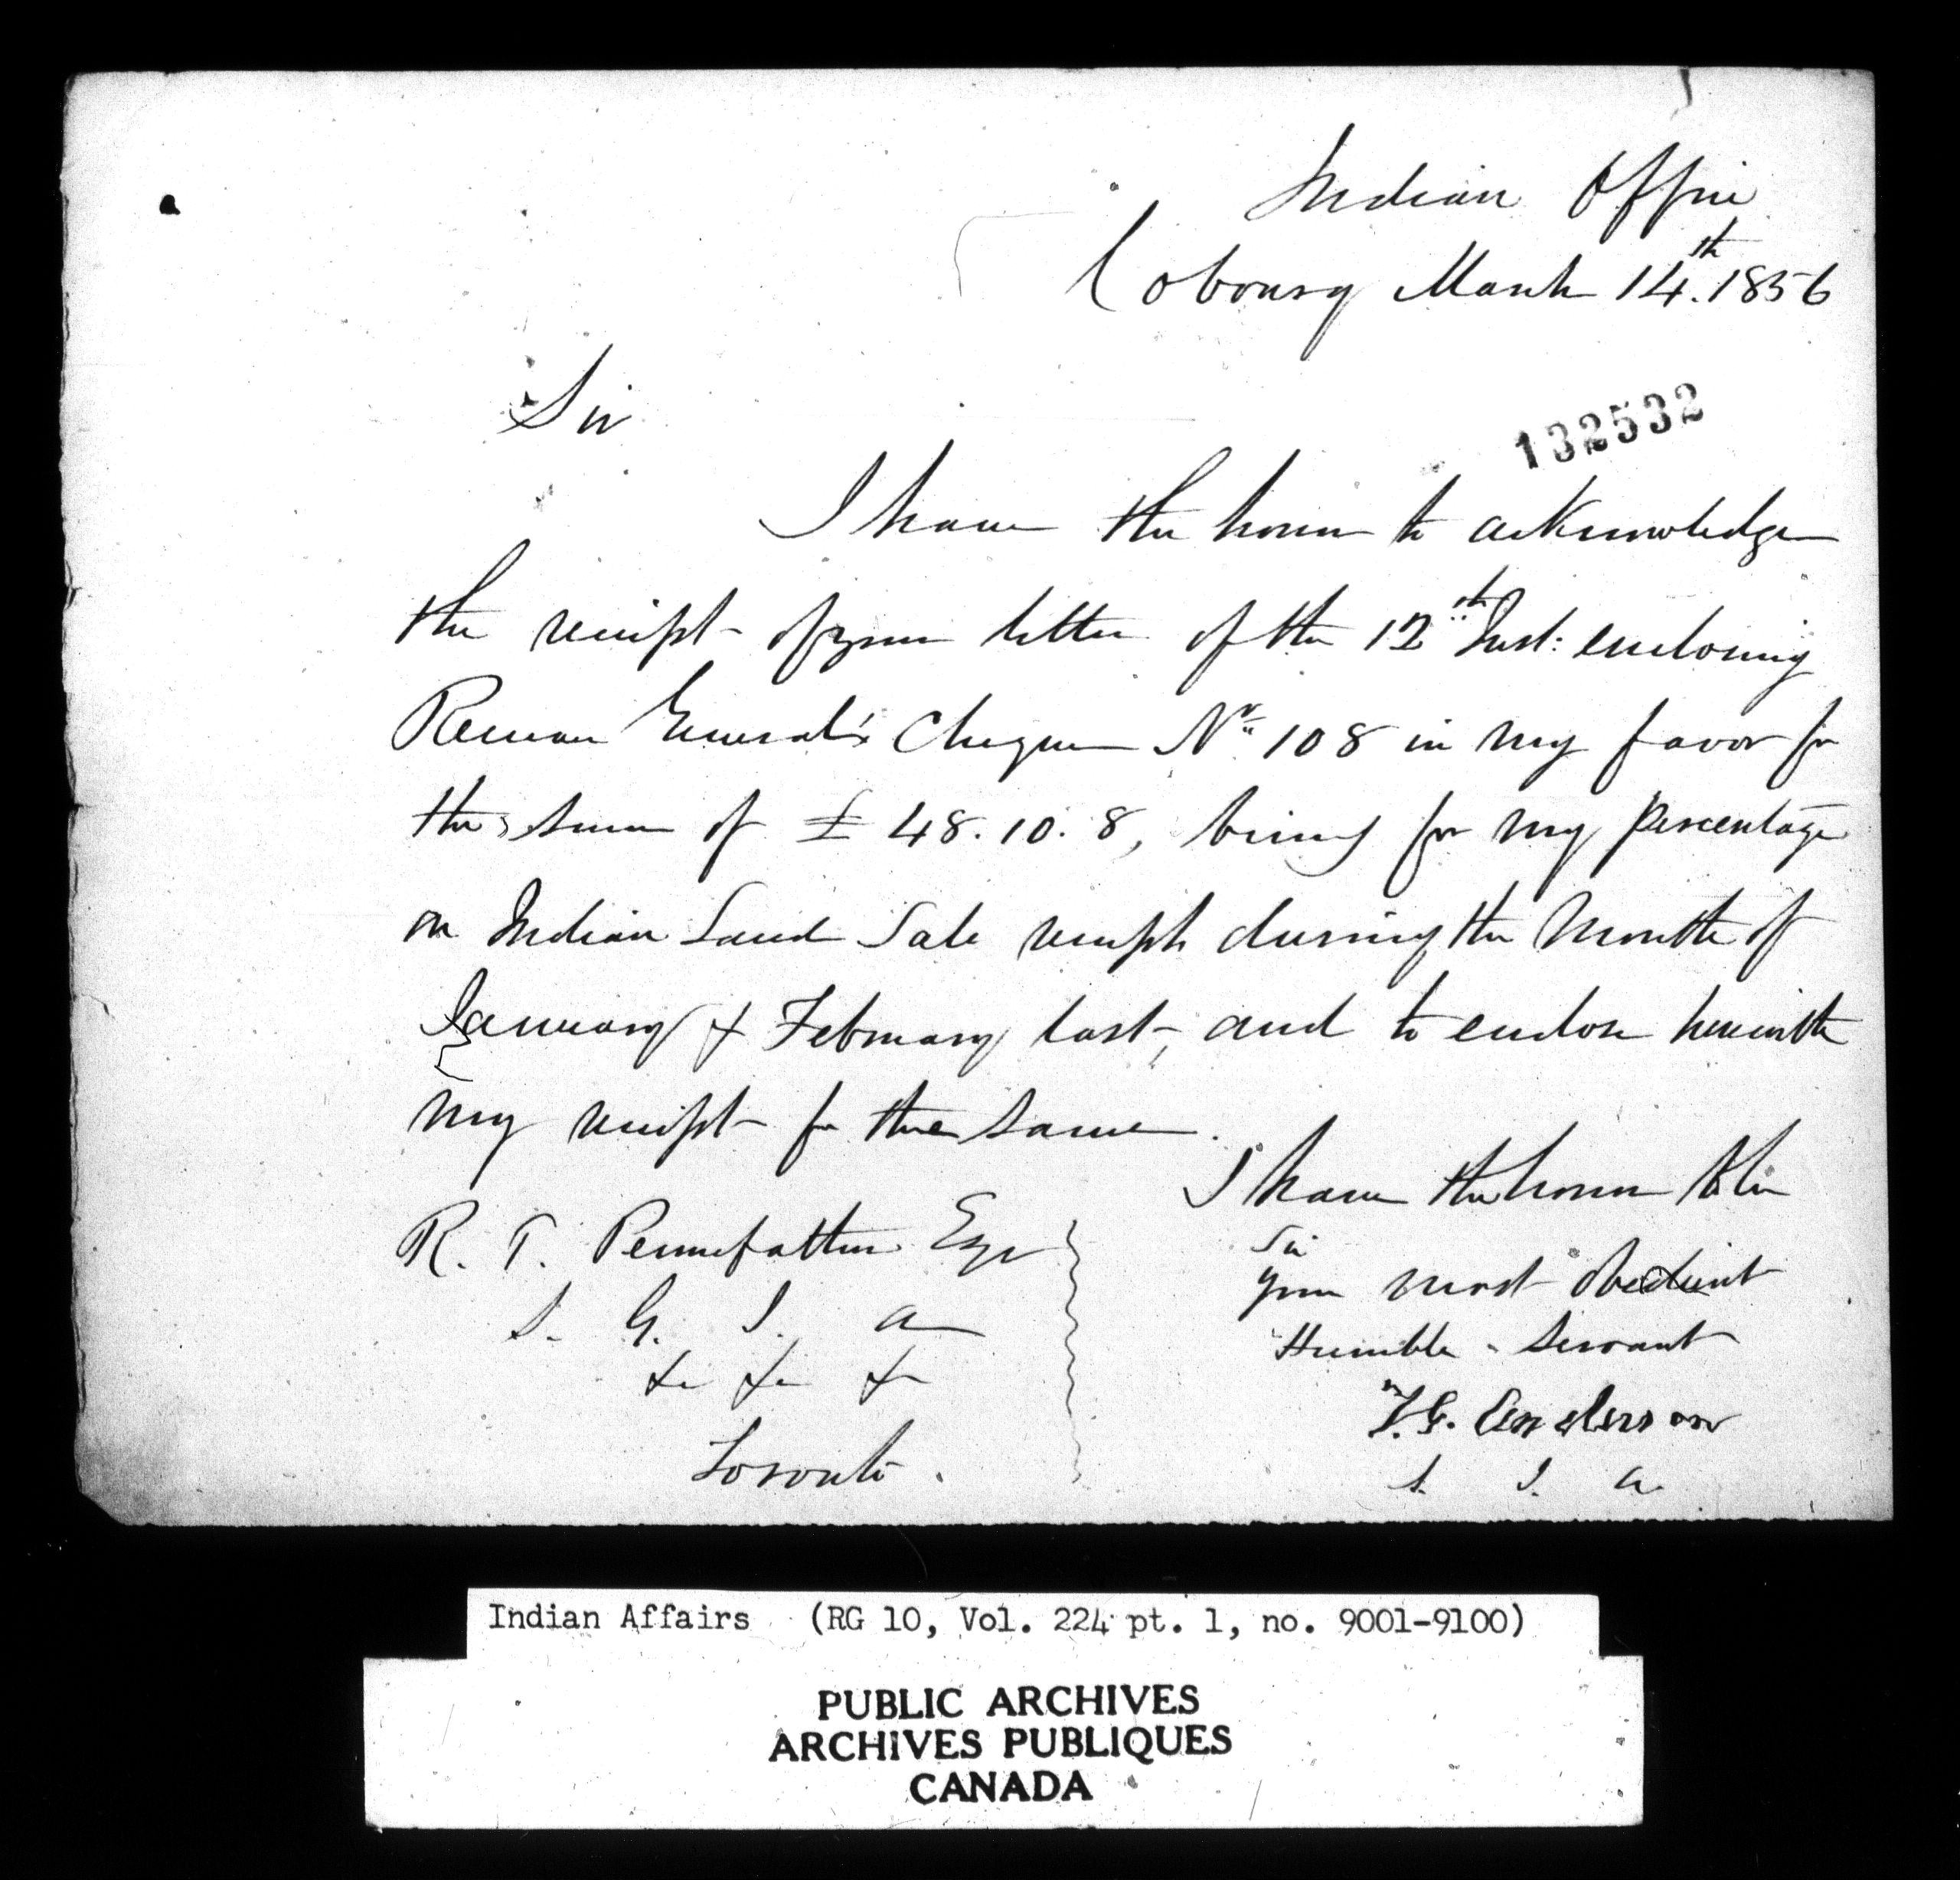 Indian Office
Cobourg March 14th. 1856
Sir
132532
I have the honor to acknowledge
the receipt of your letter of the 12th Inst: enclosing
Receiver General's Cheque No. 108 in my favor for
the sum of £ 48. 10. 8, being for my percentage
on Indian Land Sale receipts during the Month of
January & February last, and to enclose herewith
my receipt for the same.
I have the honor to be
Sir
your most obedient
Humble Servant
T.G. Anderson
S. I. A.
R. T. Pennefather Esqr
S. G. I. A
&c &c &c
Toronto.
Indian Affairs (RG 10, Vol. 224 pt. 1, no. 9001-9100)
PUBLIC ARCHIVES
ARCHIVES PUBLIQUES
CANADA